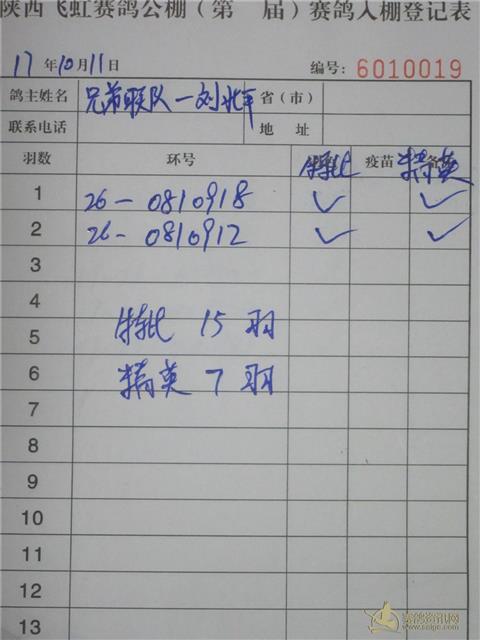 陕西飞虹赛鸽公棚（第 届）赛鸽入棚登记表
17年10月11日 编号：6010019
鸽主姓名 兄弟联队—刘北平 省（市）
联系电话 地 址
羽数 环号 特比 疫苗 精英
1 26-0810918 ✓ ✓
2 26-0810912 ✓ ✓
3
4
特比 15羽
5
6 精英 7羽
7
8
9
10
11
12
13
赛鸽资讯网
www.saige.com